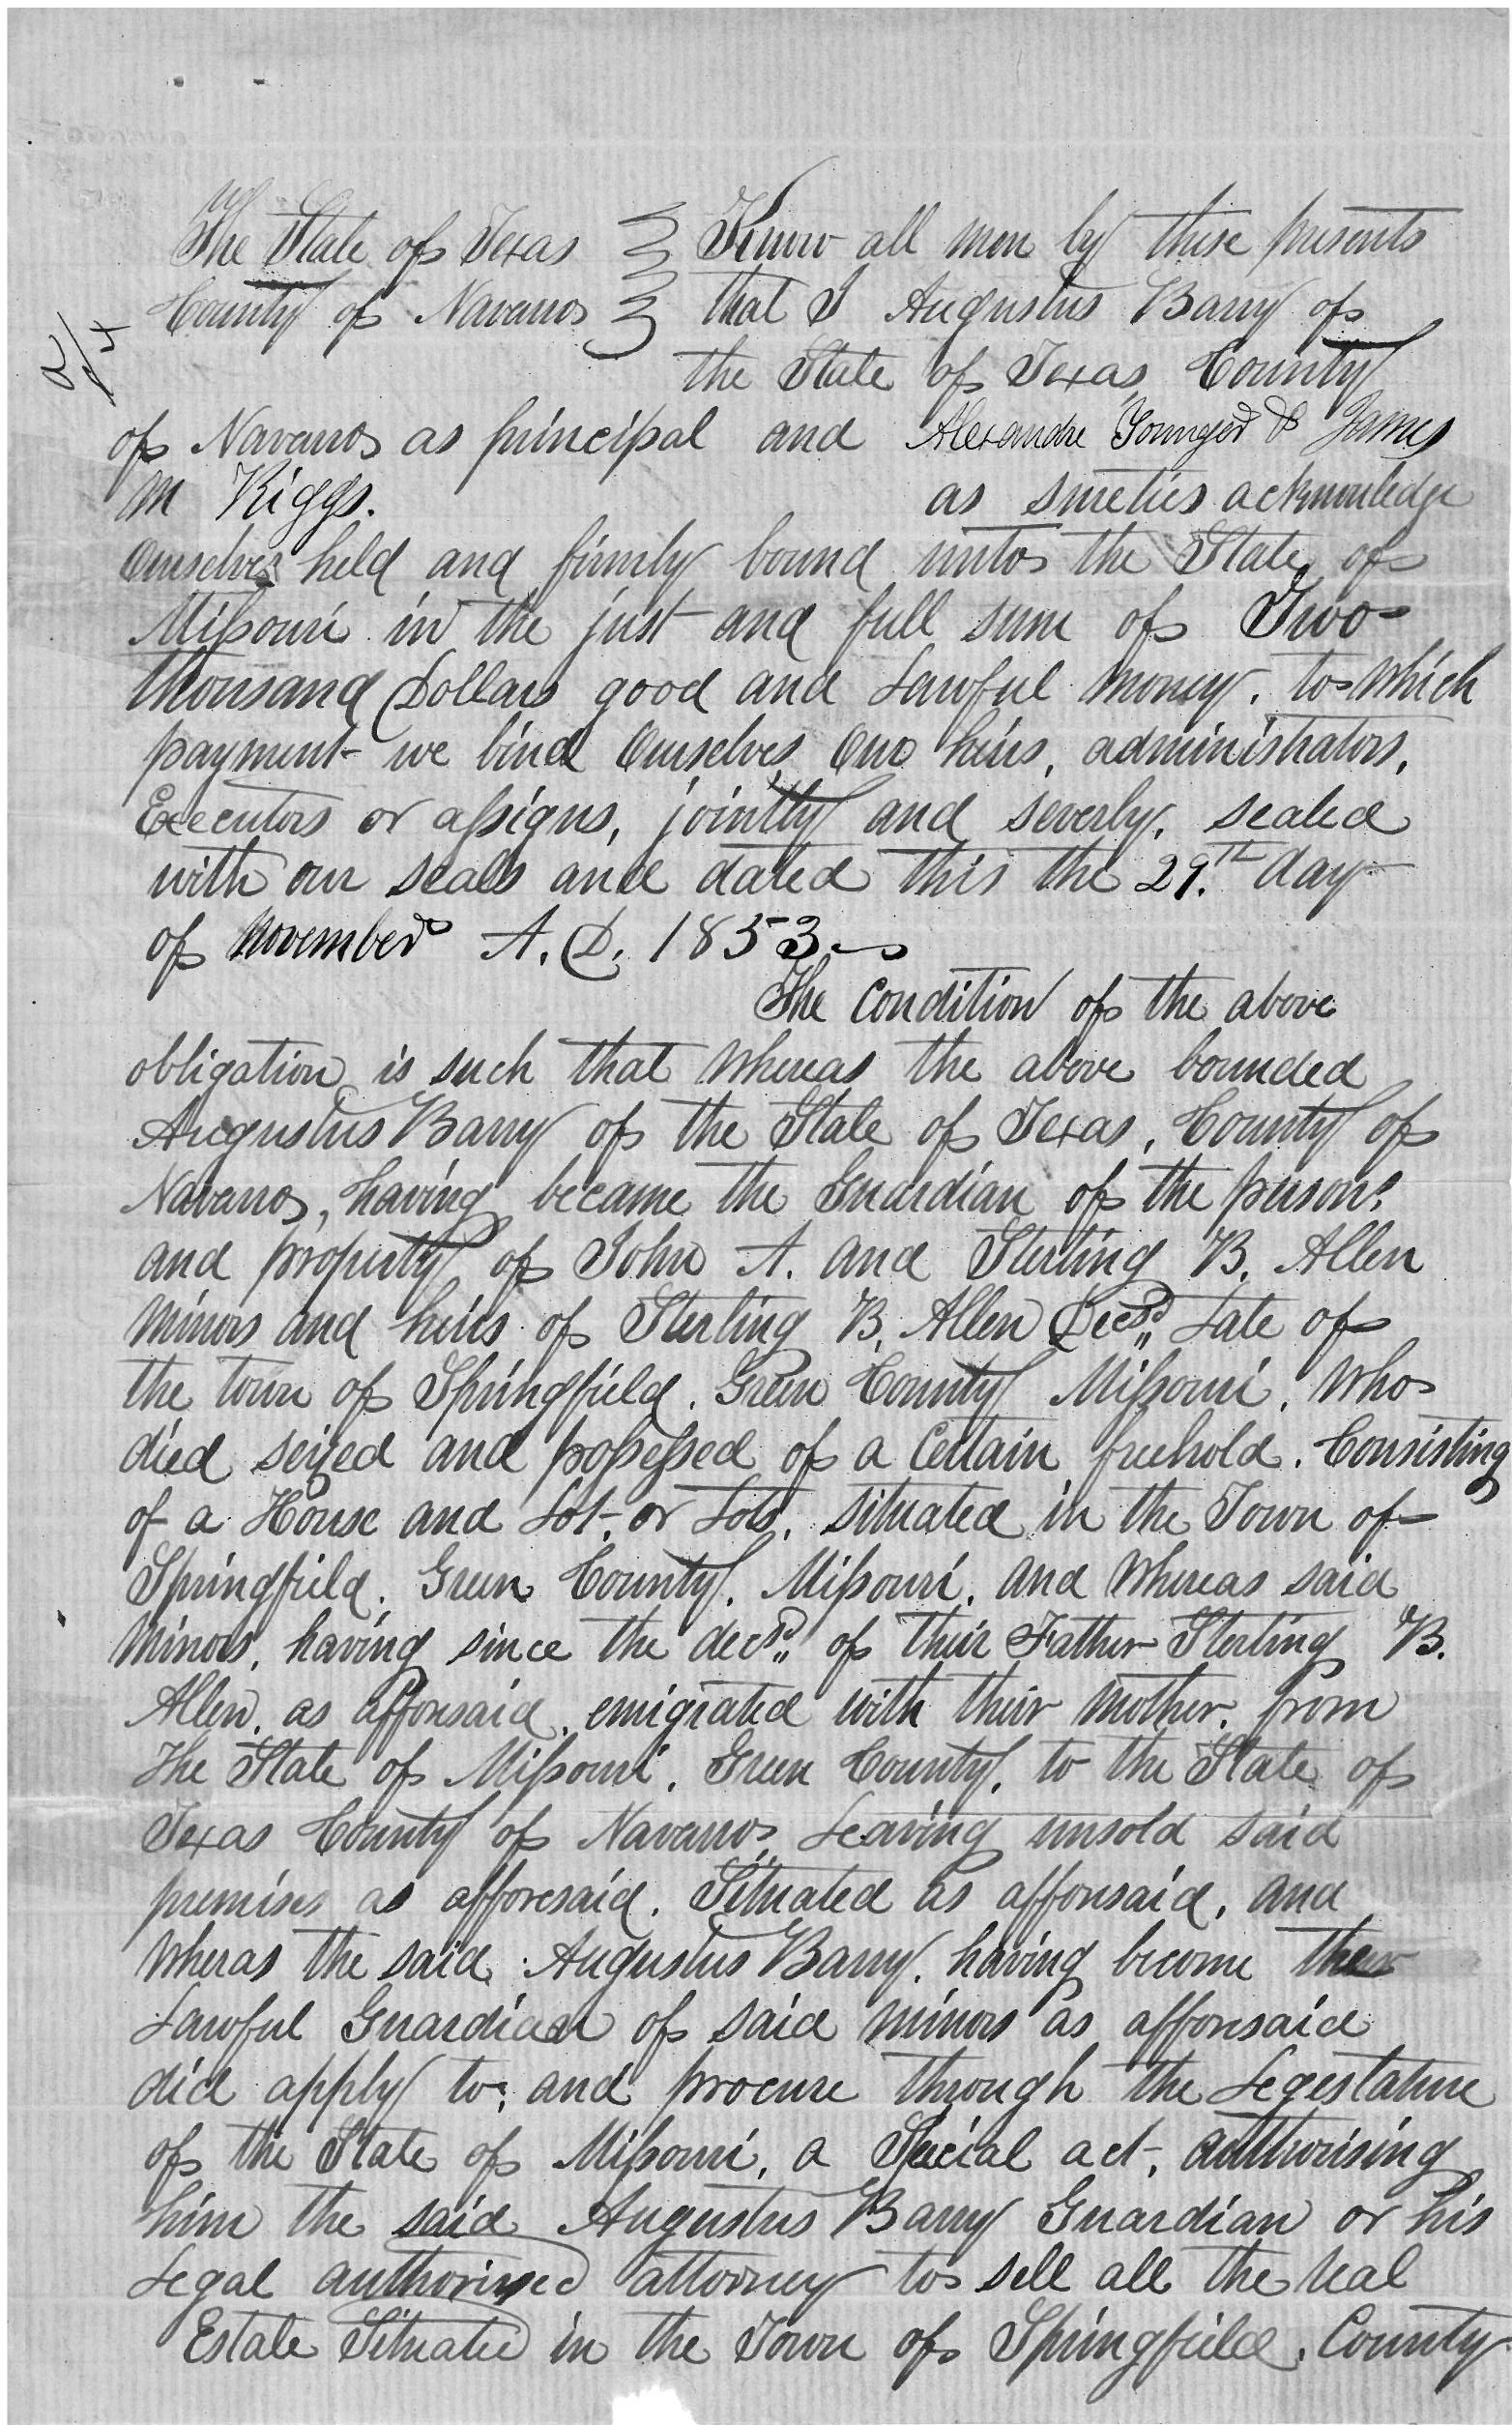 The State of Texas } Know all men by these presents
County of Navarro } that I Augustus Barry of
the State of Texas, County
of Navarro as principal and Alexandre Younger & James
M Riggs. as sureties acknowledge
ourselves held and firmly bound unto the State of
Missouri in the just and full sum of Two
thousand Dollars good and Lawful money. to which
payment we bind ourselves our heirs, administrators,
Executors or assigns, jointly and severly. sealed
with our seals and dated this the 29.th day
of November A. D. 1853
The condition of the above
obligation is such that whereas the above bounded
Augustus Barry of the State of Texas, County of
Navarro, having became the Guardian of the persons
and property of John A. and Sterling B. Allen
minors and heirs of Sterling B. Allen Decsd,, Late of
the town of Springfield. Green County Missouri. Who
died seized and possessed of a certain freehold. Consisting
of a House and Lot, or Lots, situated in the Town of
Springfield. Green County. Missouri. and Whereas said
minors, having since the decsd,, of their Father Sterling B.
Allen, as afforesaid, emigrated with their mother, from
The State of Missouri, Green County, to the State of
Texas County of Navarro, Leaving unsold said
premises as afforesaid. Situated as afforesaid, and
wheras the said Augustus Barry. having become the
Lawful Guardian of said minors as afforesaid
did apply to, and procure through the Legestature
of the State of Missouri, a Special act, authorising
him the said Augustus Barry Guardian or his
Legal authorised attorney to sell all the real
Estate Situated in the Town of Springfield, County